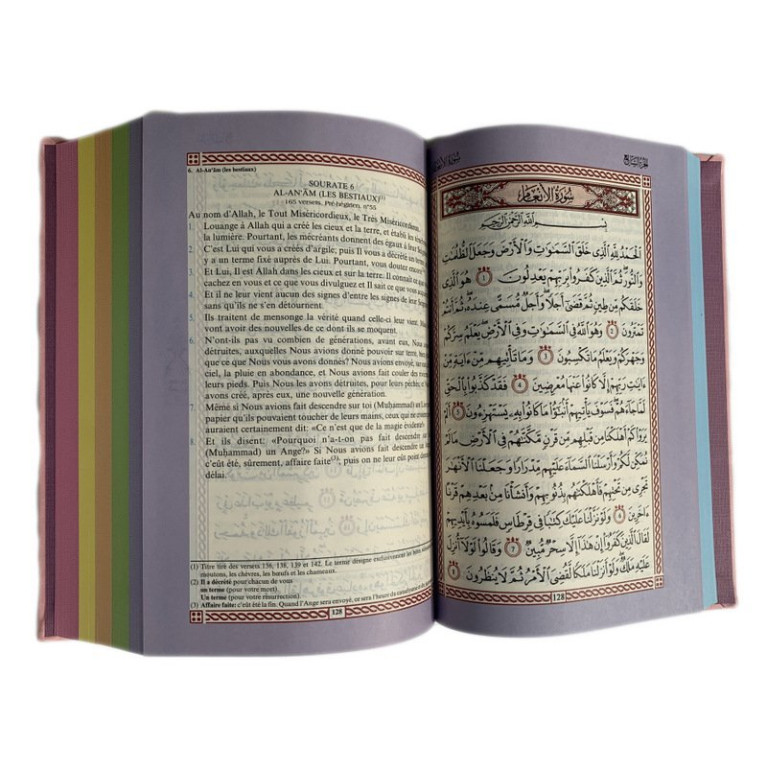 6. Al-An'ām (les bestiaux)
SOURATE 6
AL-AN'ĀM (LES BESTIAUX)(1)
165 versets. Pré-hégirien. n°55
Au nom d'Allah, le Tout Miséricordieux, le Très Miséricordieux.
1. Louange à Allah qui a créé les cieux et la terre, et établi les
la lumière. Pourtant, les mécréants donnent des égaux à leur
2. C'est Lui qui vous a créés d'argile; puis Il vous a décrété un
y a un terme fixé auprès de Lui. Pourtant, vous doutez encore!
3. Et Lui, Il est Allah dans les cieux et sur la terre. Il connaît ce
cachez en vous et ce que vous divulguez et Il sait ce que vous
4. Et il ne leur vient aucun des signes d'entre les signes de leur
sans qu'ils ne s'en détournent.
5. Ils traitent de mensonge la vérité quand celle-ci leur vient.
vont avoir des nouvelles de ce dont ils se moquent.
6. N'ont-ils pas vu combien de générations, avant eux, Nous
détruites, auxquelles Nous avions donné pouvoir sur terre,
que ce que Nous vous avons donné? Nous avions envoyé, sur
ciel, la pluie en abondance, et Nous avions fait couler des
leurs pieds. Puis Nous les avons détruites, pour leurs péchés,
avons créé, après eux, une nouvelle génération.
7. Même si Nous avions fait descendre sur toi (Muḥammad) un
papier qu'ils pouvaient toucher de leurs mains, ceux qui ne
auraient certainement dit: «Ce n'est que de la magie évidente!
8. Et ils disent: «Pourquoi n'a-t-on pas fait descendre sur
(Muḥammad) un Ange?» Si Nous avions fait descendre
c'eût été, sûrement, affaire faite(3), puis on ne leur eût point
délai.
(1) Titre tiré des versets 136, 138, 139 et 142. Le terme désigne exclusivement les
moutons, les chèvres, les bœufs et les chameaux.
(2) Il a décrété pour chacun de vous
un terme (pour votre mort).
Un terme (pour votre résurrection).
(3) Affaire faite: c'eût été la fin. Quand l'Ange sera envoyé, ce sera l'heure du
128
الجزء السابع
سُورَةُ الأَنْعَامِ
بِسْمِ اللَّهِ الرَّحْمَٰنِ الرَّحِيمِ
الْحَمْدُ لِلَّهِ الَّذِي خَلَقَ السَّمَٰوَٰتِ وَالْأَرْضَ وَجَعَلَ الظُّلُمَٰتِ
وَالنُّورَ ثُمَّ الَّذِينَ كَفَرُوا بِرَبِّهِمْ يَعْدِلُونَ ١ هُوَ الَّذِي
خَلَقَكُم مِّن طِينٍ ثُمَّ قَضَىٰ أَجَلًا وَأَجَلٌ مُّسَمًّى عِندَهُ ثُمَّ أَنتُمْ
تَمْتَرُونَ ٢ وَهُوَ اللَّهُ فِي السَّمَٰوَٰتِ وَفِي الْأَرْضِ يَعْلَمُ سِرَّكُمْ
وَجَهْرَكُمْ وَيَعْلَمُ مَا تَكْسِبُونَ ٣ وَمَا تَأْتِيهِم مِّنْ ءَايَةٍ مِّنْ
ءَايَٰتِ رَبِّهِمْ إِلَّا كَانُوا عَنْهَا مُعْرِضِينَ ٤ فَقَدْ كَذَّبُوا بِالْحَقِّ
لَمَّا جَاءَهُمْ فَسَوْفَ يَأْتِيهِمْ أَنبَٰٓؤُا مَا كَانُوا بِهِ يَسْتَهْزِءُونَ ٥ أَلَمْ
يَرَوْا كَمْ أَهْلَكْنَا مِن قَبْلِهِم مِّن قَرْنٍ مَّكَّنَّٰهُمْ فِي الْأَرْضِ مَا لَمْ
نُمَكِّن لَّكُمْ وَأَرْسَلْنَا السَّمَاءَ عَلَيْهِم مِّدْرَارًا وَجَعَلْنَا الْأَنْهَٰرَ
تَجْرِي مِن تَحْتِهِمْ فَأَهْلَكْنَٰهُم بِذُنُوبِهِمْ وَأَنشَأْنَا مِن بَعْدِهِمْ قَرْنًا
ءَاخَرِينَ ٦ وَلَوْ نَزَّلْنَا عَلَيْكَ كِتَٰبًا فِي قِرْطَاسٍ فَلَمَسُوهُ بِأَيْدِيهِمْ
لَقَالَ الَّذِينَ كَفَرُوا إِنْ هَٰذَا إِلَّا سِحْرٌ مُّبِينٌ ٧ وَقَالُوا لَوْلَا أُنزِلَ
عَلَيْهِ مَلَكٌ وَلَوْ أَنزَلْنَا مَلَكًا لَّقُضِيَ الْأَمْرُ ثُمَّ لَا يُنظَرُونَ ٨
128